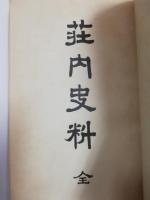 荘内史料
全